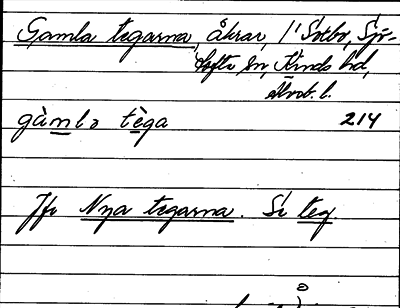 Gamla tegarna, åkrar, i Sotbo, Sjö-
tofta sn, Kinds hd,
Älvsb. l.
gàmlə tèga 214
Jfr Nya tegarna. Se teg.